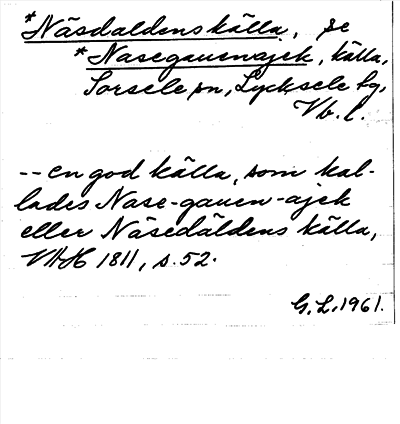 *Näsdaldens källa, se
*Nasegauenajek, källa,
Sorsele sn, Lycksele lg,
Vb. l.
-- en god källa, som kal-
lades Nase-gauen-ajek
eller Näsedäldens källa,
VAH 1811, s. 52.
G. L. 1961.